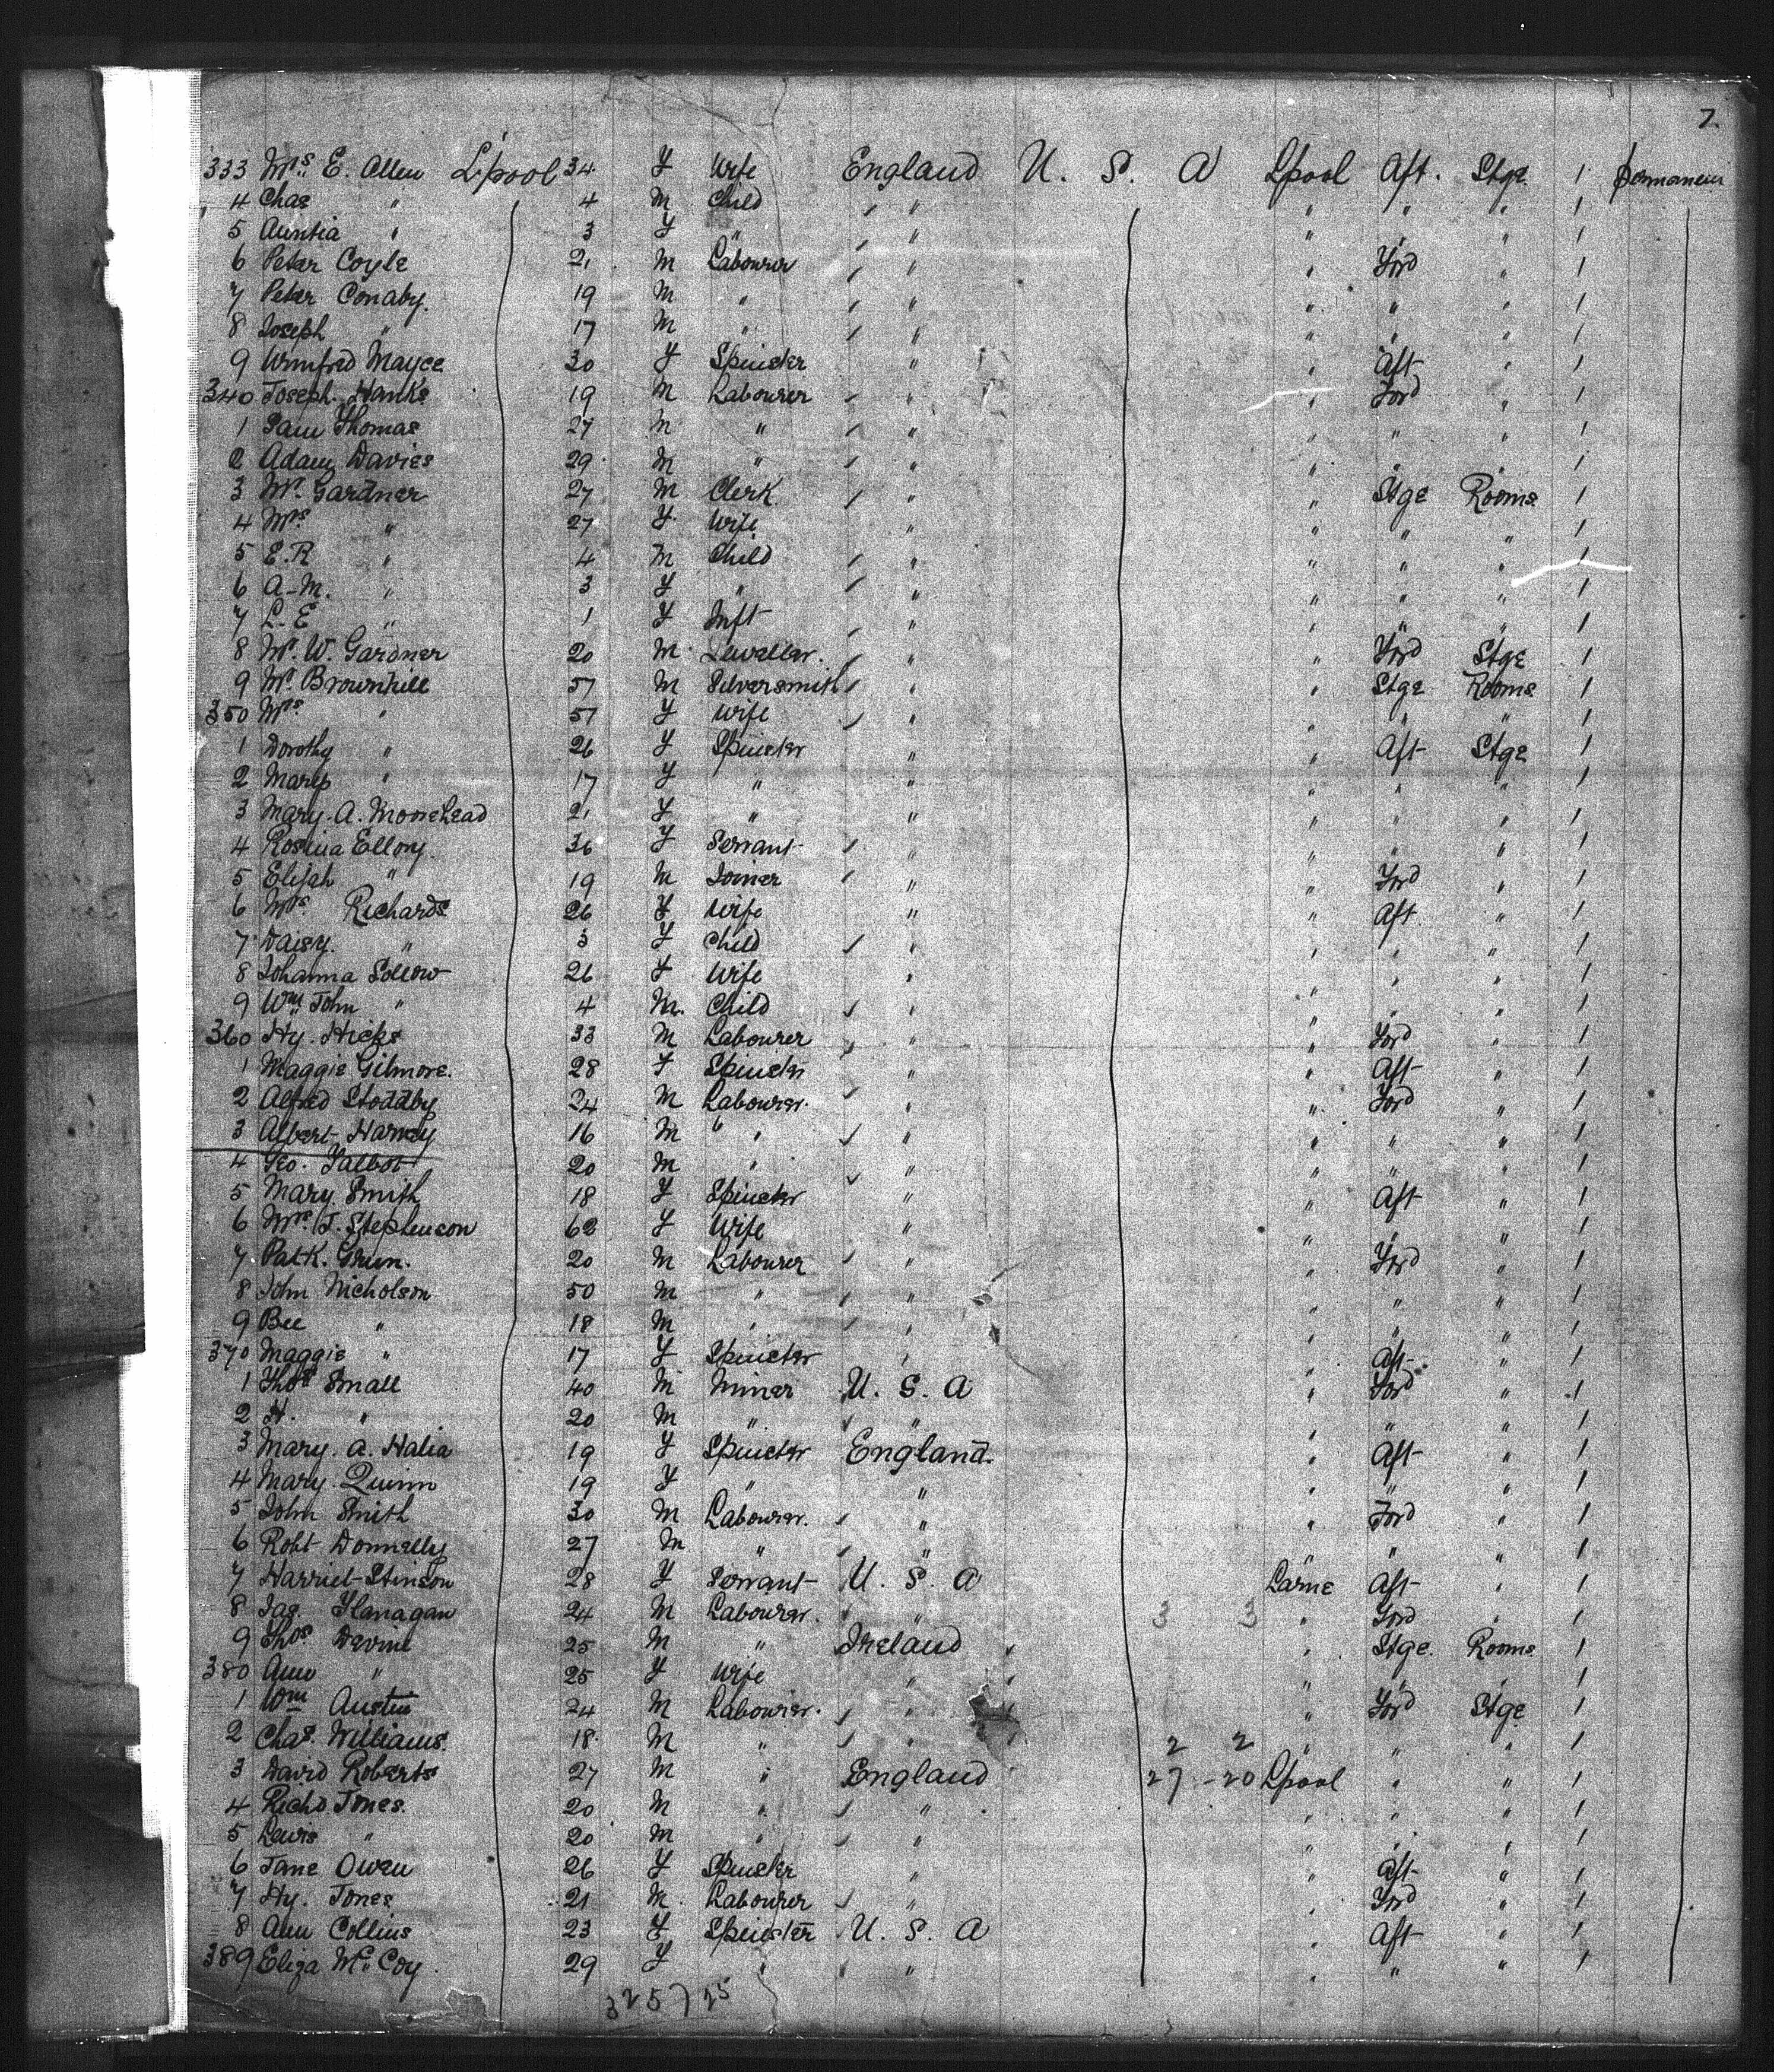 7.
333 Mrs E. Allen L'pool 34 F Wife England U. S. A Lpool Aft. Stge 1 permanent
4 Chas " 4 M Child " " " " " 1
5 " 3 F " " " " " 1
6 Peter Coyle 21 M Labourer " " Ford " 1
7 Peter Conaby 19 M " " " " " 1
8 Joseph " 17 M " " " " " 1
9 Winifred Mayce 30 F Spinster " " Aft " 1
340 Joseph Hanks 19 M Labourer " " Ford " 1
1 Sam Thomas 27 M " " " " " 1
2 Adam Davies 29 M " " " " " 1
3 Mr. Gardner 27 M Clerk " " Stge Rooms 1
4 Mrs " 27 F Wife " " " " 1
5 E.R " 4 M Child " " " " 1
6 A-M. " 3 F " " " " " 1
7 L-E " 1 F Inft " " " " 1
8 Mr. W. Gardner 20 M Jeweller. " " Ford Stge 1
9 Mr. Brownhill 57 M Silversmith " " Stge Rooms 1
350 Mrs " 57 F Wife " " " " 1
1 Dorothy " 26 F Spinster " " Aft Stge 1
2 " 17 F " " " " " 1
3 Mary. A. Moorehead 21 F " " " " " 1
4 Rosina Ellory 36 F Servant " " " " 1
5 Elijah " 19 M Joiner " " Ford " 1
6 Mrs. Richards 26 F Wife " " Aft " 1
7 Daisy. " 3 F Child " " " " 1
8 Johanna Sollow 26 F Wife " " " " 1
9 Wm John " 4 M. Child " " " " 1
360 Hy. Hicks 33 M Labourer " " Ford " 1
1 Maggie Gilmore. 28 F Spinster " " Aft " 1
2 Alfred Stoddby 24 M Labourer. " " Ford " 1
3 Albert Harvey 16 M " " " " " 1
4 Geo. Talbot 20 M " " " " " 1
5 Mary Smith 18 F Spinster " " Aft " 1
6 Mrs. J. Stephenson 62 F Wife " " " " 1
7 Patk. 20 M Labourer " " Ford " 1
8 John Nicholson 50 M " " " " " 1
9 " 18 M " " " " " 1
370 Maggie " 17 F Spinster " " Aft " 1
1 Thos Small 40 M Miner U. S. A " Ford " 1
2 H. " 20 M " " " " " 1
3 Mary. A. Halia 19 F Spinster England " Aft " 1
4 Mary. Quinn 19 F " " " " " 1
5 John Smith 30 M Labourer. " " Ford " 1
6 Robt Donnelly 27 M " " " " " 1
7 Harriet Stinson 28 F Servant U. S. A Larne Aft " 1
8 Jas. Flanagan 24 M Labourer. " 3 3 " Ford " 1
9 Thos Devine 25 M " Ireland " Stge. Rooms 1
380 Ann " 25 F Wife " " " " 1
1 Wm Austin 24 M Labourer. " " Ford Stge 1
2 Chas. Williams. 18 M " " 2 2 " " " 1
3 David Roberts 27 M " England 27 - 20 Lpool " " 1
4 Richd Jones. 20 M " " " " " 1
5 Lewis " 20 M " " " " " 1
6 Jane Owen 26 F Spinster " " Aft " 1
7 Hy. Jones 21 M. Labourer " " Ford " 1
8 Ann Collins 23 F Spinster U. S. A " Aft " 1
389 Eliza McCoy. 29 F " " " " " 1
325 7 25